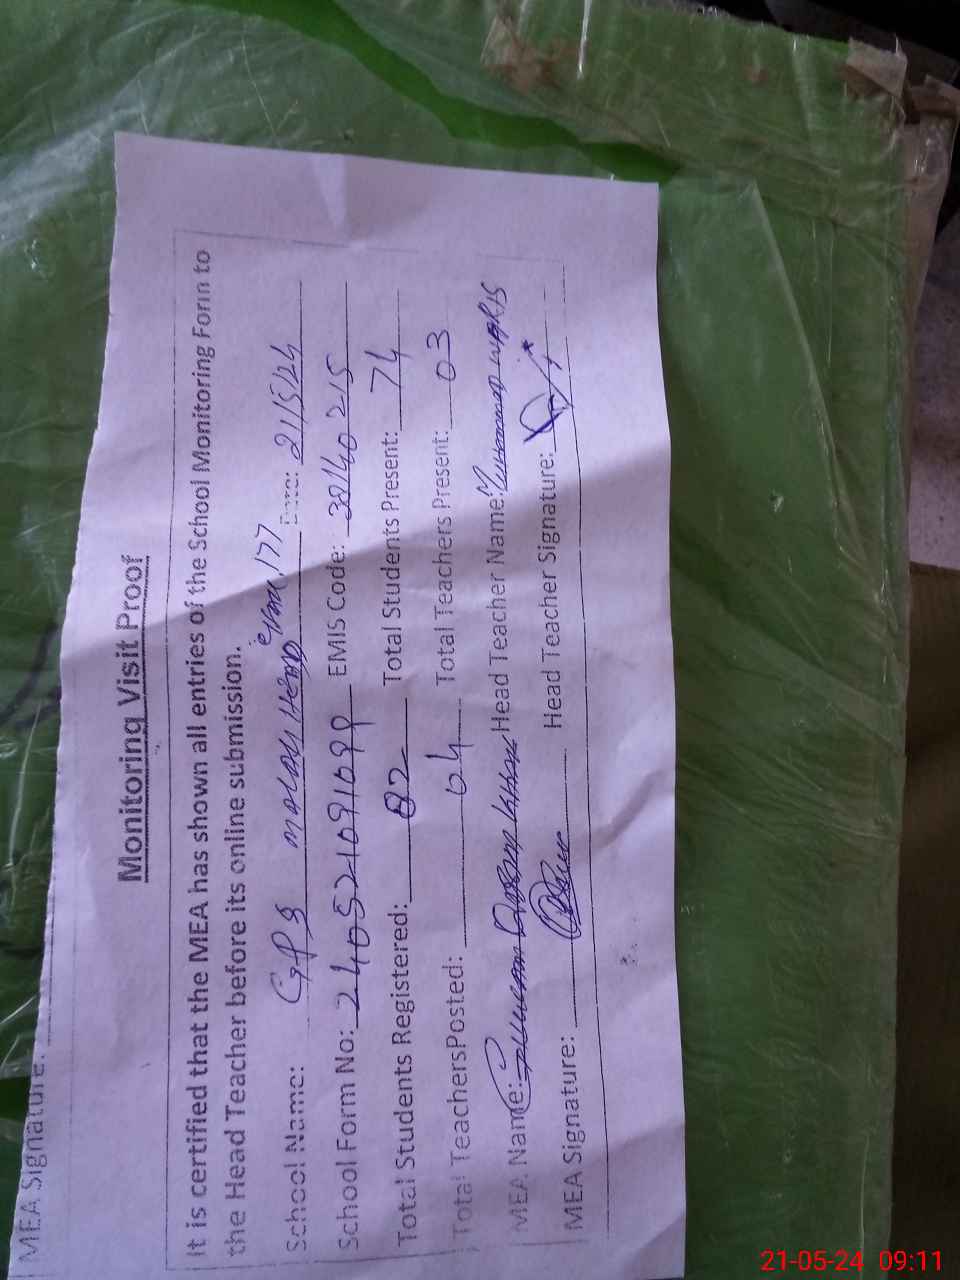 MEA Signature:
Monitoring Visit Proof
It is certified that the MEA has shown all entries of the School Monitoring Form to
the Head Teacher before its online submission.
School Name: GPS 177 Date: 21/5/24
School Form No: EMIS Code: 38140215
Total Students Registered: 82 Total Students Present: 74
Total Teachers Posted: 04 Total Teachers Present: 03
MEA Name: Head Teacher Name: Muhammad
MEA Signature: Head Teacher Signature:
21-05-24 09:11